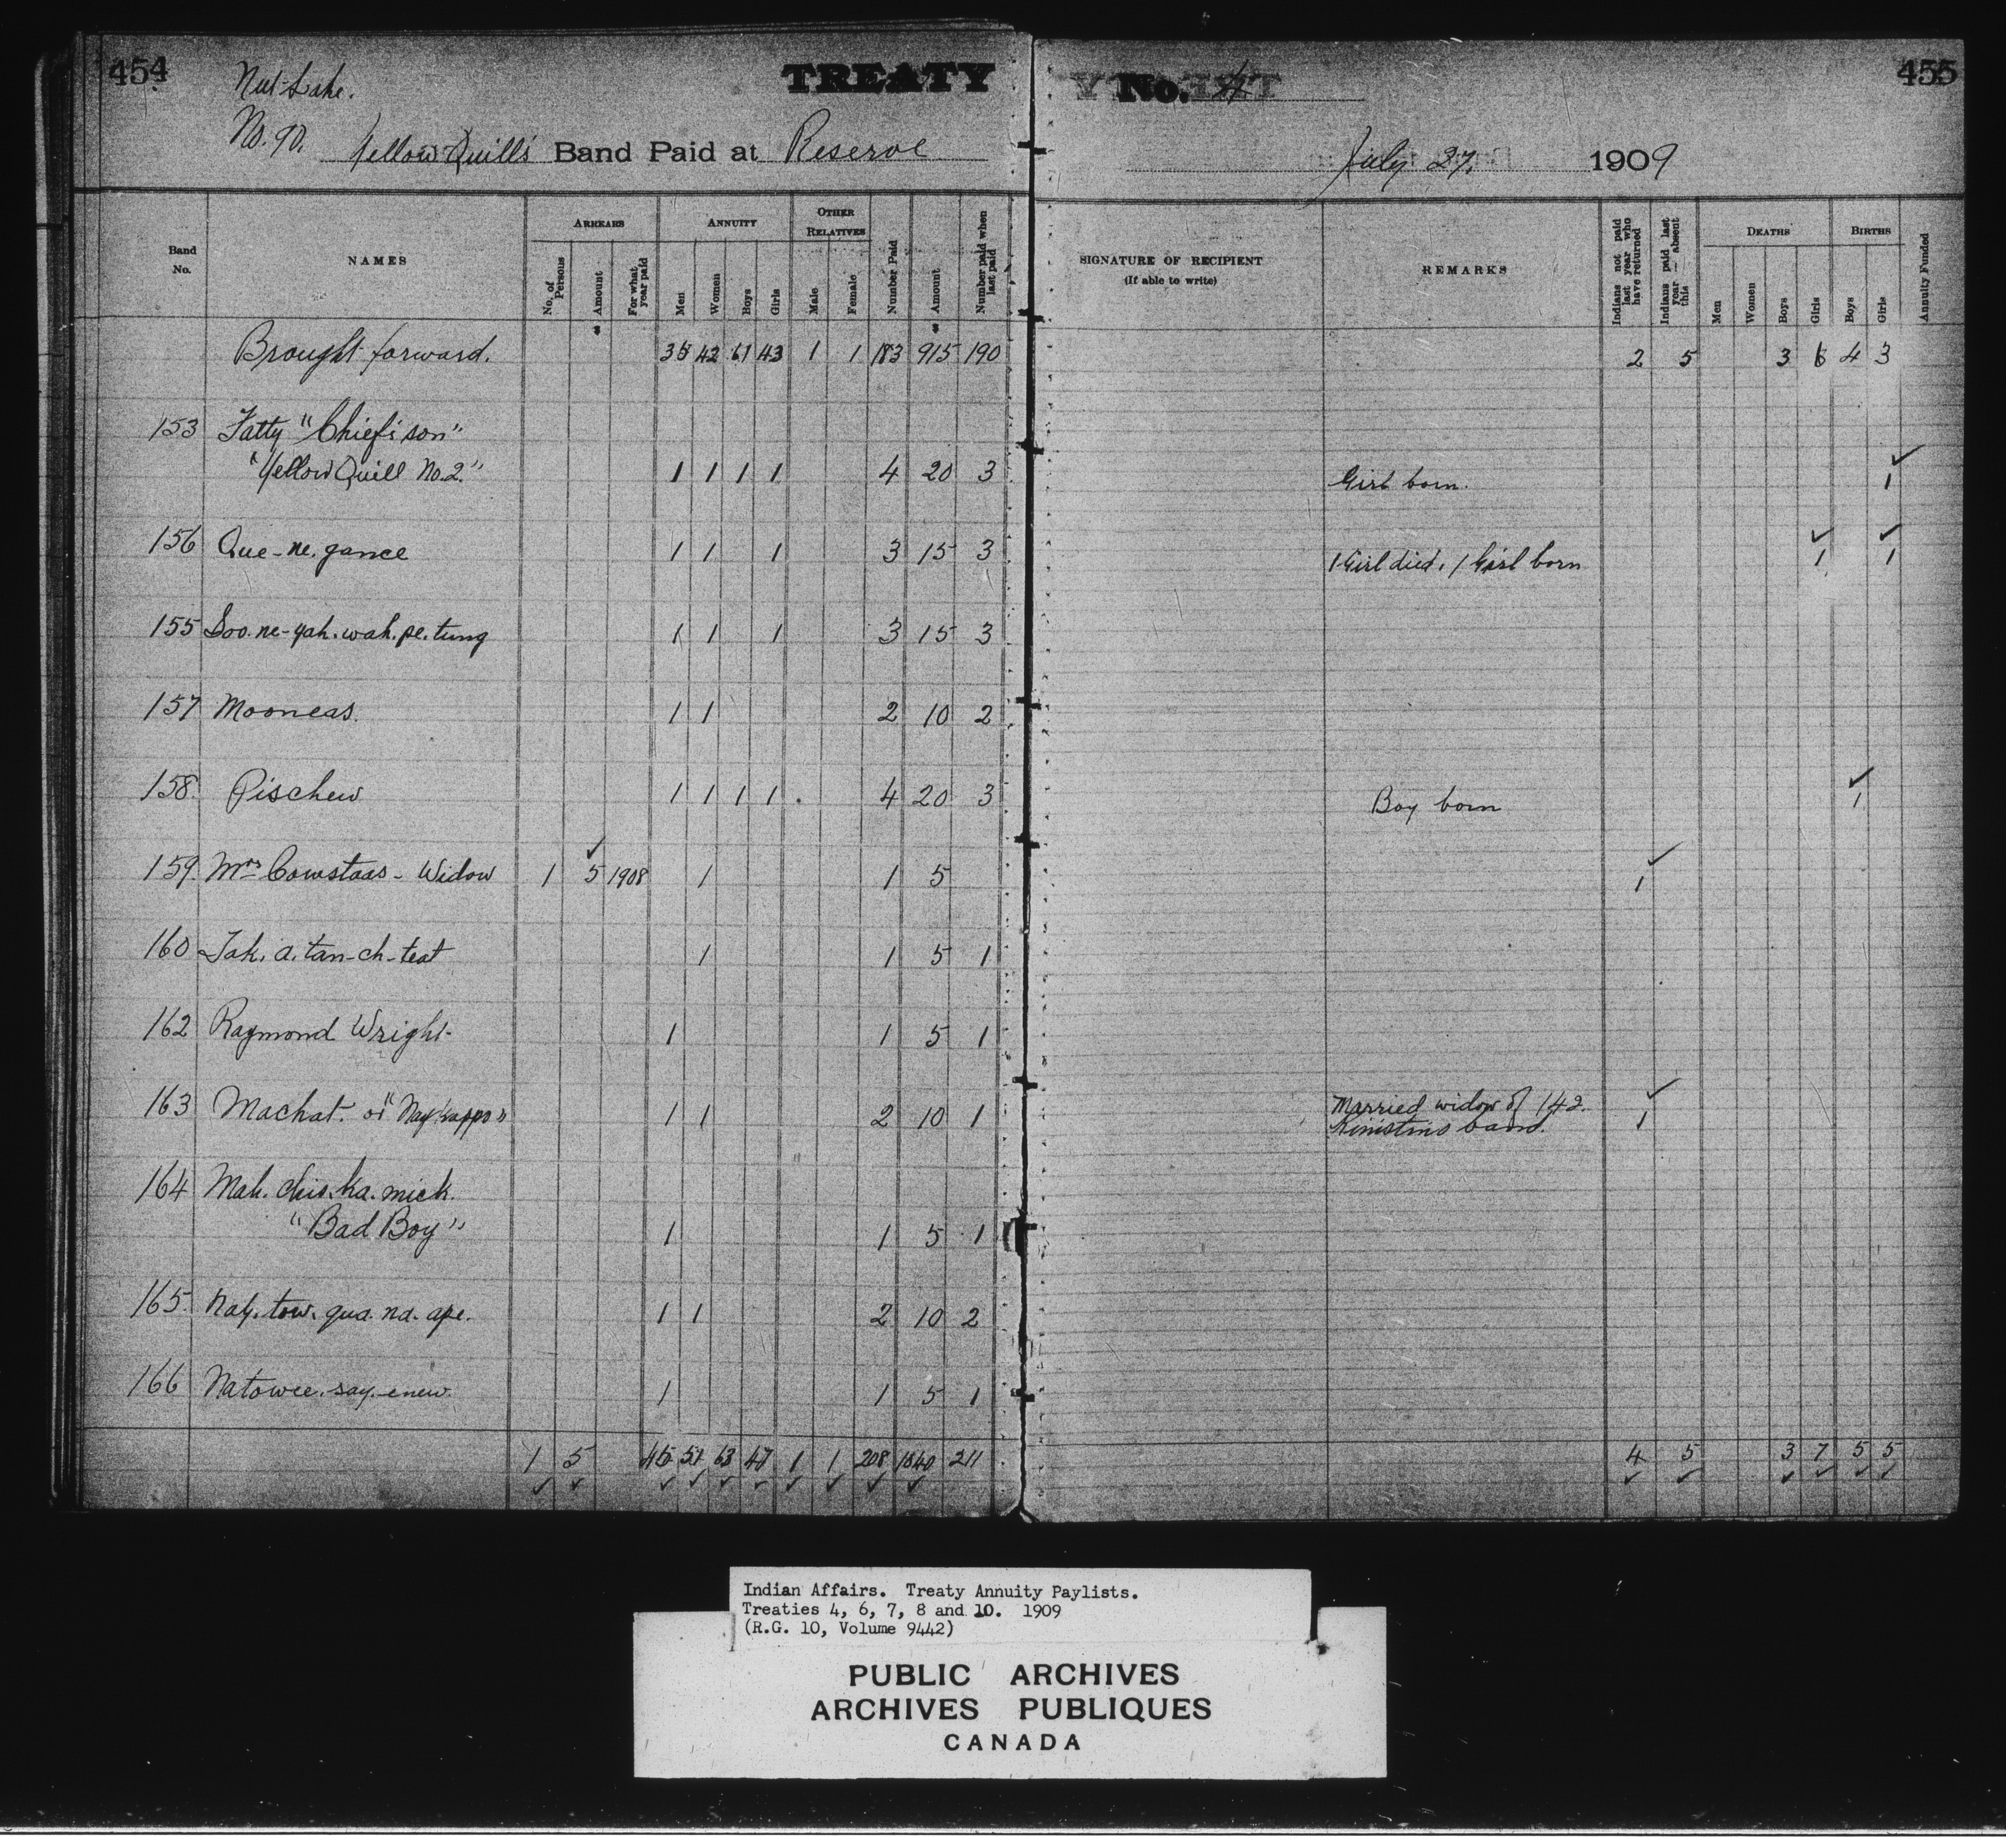 454
Nut Lake.
TREATY
No. 90. Yellow Quill's Band Paid at Reserve
Band No. NAMES ARREARS ANNUITY OTHER RELATIVES Number Paid Amount Number paid when last paid
No. of Persons Amount For what year paid Men Women Boys Girls Male Female
Brought forward. 35 42 61 43 1 1 183 915 190
153 Fatty "Chief's son"
"Yellow Quill No. 2." 1 1 1 1 4 20 3
156 Que-ne.gance 1 1 1 3 15 3
155 Soo.ne-yah.wah.pe.tung 1 1 1 3 15 3
157 Mooneas. 1 1 2 10 2
158. Pischew 1 1 1 1 . 4 20 3
159. Mrs Cowstaas - Widow 1 5 1908 1 1 5
160 Tak.a.tan-ch-teat 1 1 5 1
162 Raymond Wright 1 1 5 1
163 Machat. or "Naykappo" 1 1 2 10 1
164 Mah.chis.ka.mick.
"Bad Boy" 1 1 5 1
165. Nay.tow.qua.na.ape. 1 1 2 10 2
166 Natowee.say-enew. 1 1 5 1
1 5 45 51 63 47 1 1 208 1040 211
No. 4
455
July 27, 1909
SIGNATURE OF RECIPIENT (If able to write) REMARKS Indians not paid last year who have returned Indians paid last year — absent this DEATHS BIRTHS Annuity Funded
Men Women Boys Girls Boys Girls
2 5 3 6 4 3
Girl born. 1
1 Girl died, 1 Girl born 1 1
Boy born 1
1
Married widow of 142.
Kinistino band. 1
4 5 3 7 5 5
Indian Affairs. Treaty Annuity Paylists.
Treaties 4, 6, 7, 8 and 10. 1909
(R.G. 10, Volume 9442)
PUBLIC ARCHIVES
ARCHIVES PUBLIQUES
CANADA